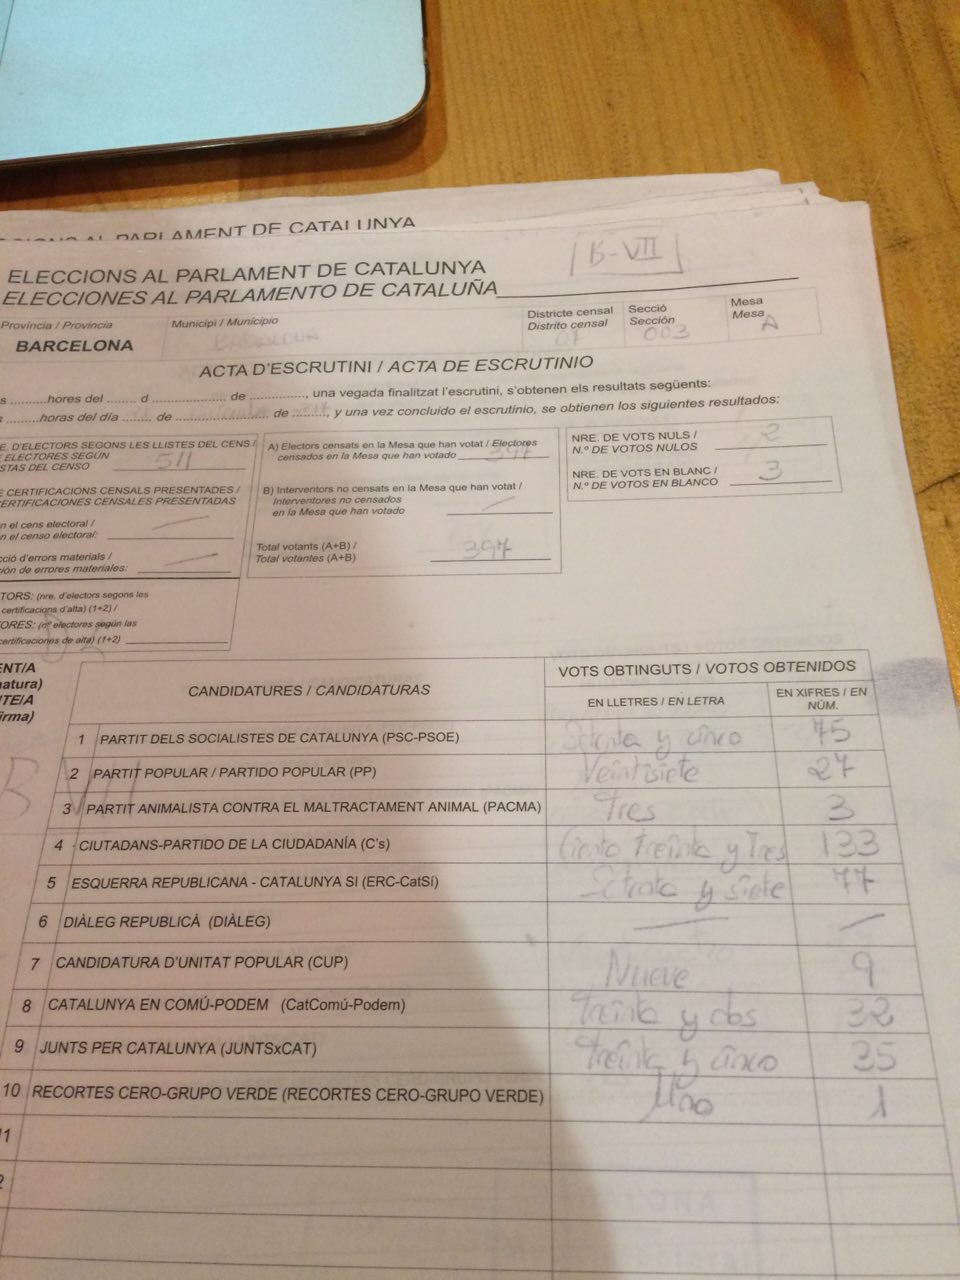 CIONS AL PARLAMENT DE CATALUNYA
B-VII
ELECCIONS AL PARLAMENT DE CATALUNYA
ELECCIONES AL PARLAMENTO DE CATALUÑA
Província / Provincia
Municipi / Municipio
Districte censal
Distrito censal
Secció
Sección
Mesa
Mesa
BARCELONA
BARCELONA
07
003
A
ACTA D'ESCRUTINI / ACTA DE ESCRUTINIO
s ..........hores del ........ d ..................... de ..............., una vegada finalitzat l'escrutini, s'obtenen els resultats següents:
s ..........horas del día ........ de ..................... de ........, y una vez concluido el escrutinio, se obtienen los siguientes resultados:
E. D'ELECTORS SEGONS LES LLISTES DEL CENS /
E ELECTORES SEGÚN
STAS DEL CENSO 511
E CERTIFICACIONS CENSALS PRESENTADES /
ERTIFICACIONES CENSALES PRESENTADAS
n el cens electoral /
n el censo electoral:
cció d'errors materials /
ción de errores materiales:
TORS: (nre. d'electors segons les
certificacions d'alta) (1+2) /
ORES: (nº electores según las
certificaciones de alta) (1+2)
A) Electors censats en la Mesa que han votat / Electores
censados en la Mesa que han votado 397
B) Interventors no censats en la Mesa que han votat /
Interventores no censados
en la Mesa que han votado
Total votants (A+B) /
Total votantes (A+B) 397
NRE. DE VOTS NULS /
N.º DE VOTOS NULOS 2
NRE. DE VOTS EN BLANC /
N.º DE VOTOS EN BLANCO 3
ENT/A
natura)
TE/A
irma)
B VII
CANDIDATURES / CANDIDATURAS
VOTS OBTINGUTS / VOTOS OBTENIDOS
EN LLETRES / EN LETRA
EN XIFRES / EN
NÚM.
1 PARTIT DELS SOCIALISTES DE CATALUNYA (PSC-PSOE) Setenta y cinco 75
2 PARTIT POPULAR / PARTIDO POPULAR (PP) Veintisiete 27
3 PARTIT ANIMALISTA CONTRA EL MALTRACTAMENT ANIMAL (PACMA) Tres 3
4 CIUTADANS-PARTIDO DE LA CIUDADANÍA (C's) Ciento Treinta y Tres 133
5 ESQUERRA REPUBLICANA - CATALUNYA SI (ERC-CatSí) Setenta y siete 77
6 DIÀLEG REPUBLICÀ (DIÀLEG)
7 CANDIDATURA D'UNITAT POPULAR (CUP) Nueve 9
8 CATALUNYA EN COMÚ-PODEM (CatComú-Podem) Treinta y dos 32
9 JUNTS PER CATALUNYA (JUNTSxCAT) Treinta y cinco 35
10 RECORTES CERO-GRUPO VERDE (RECORTES CERO-GRUPO VERDE) Uno 1
11
2